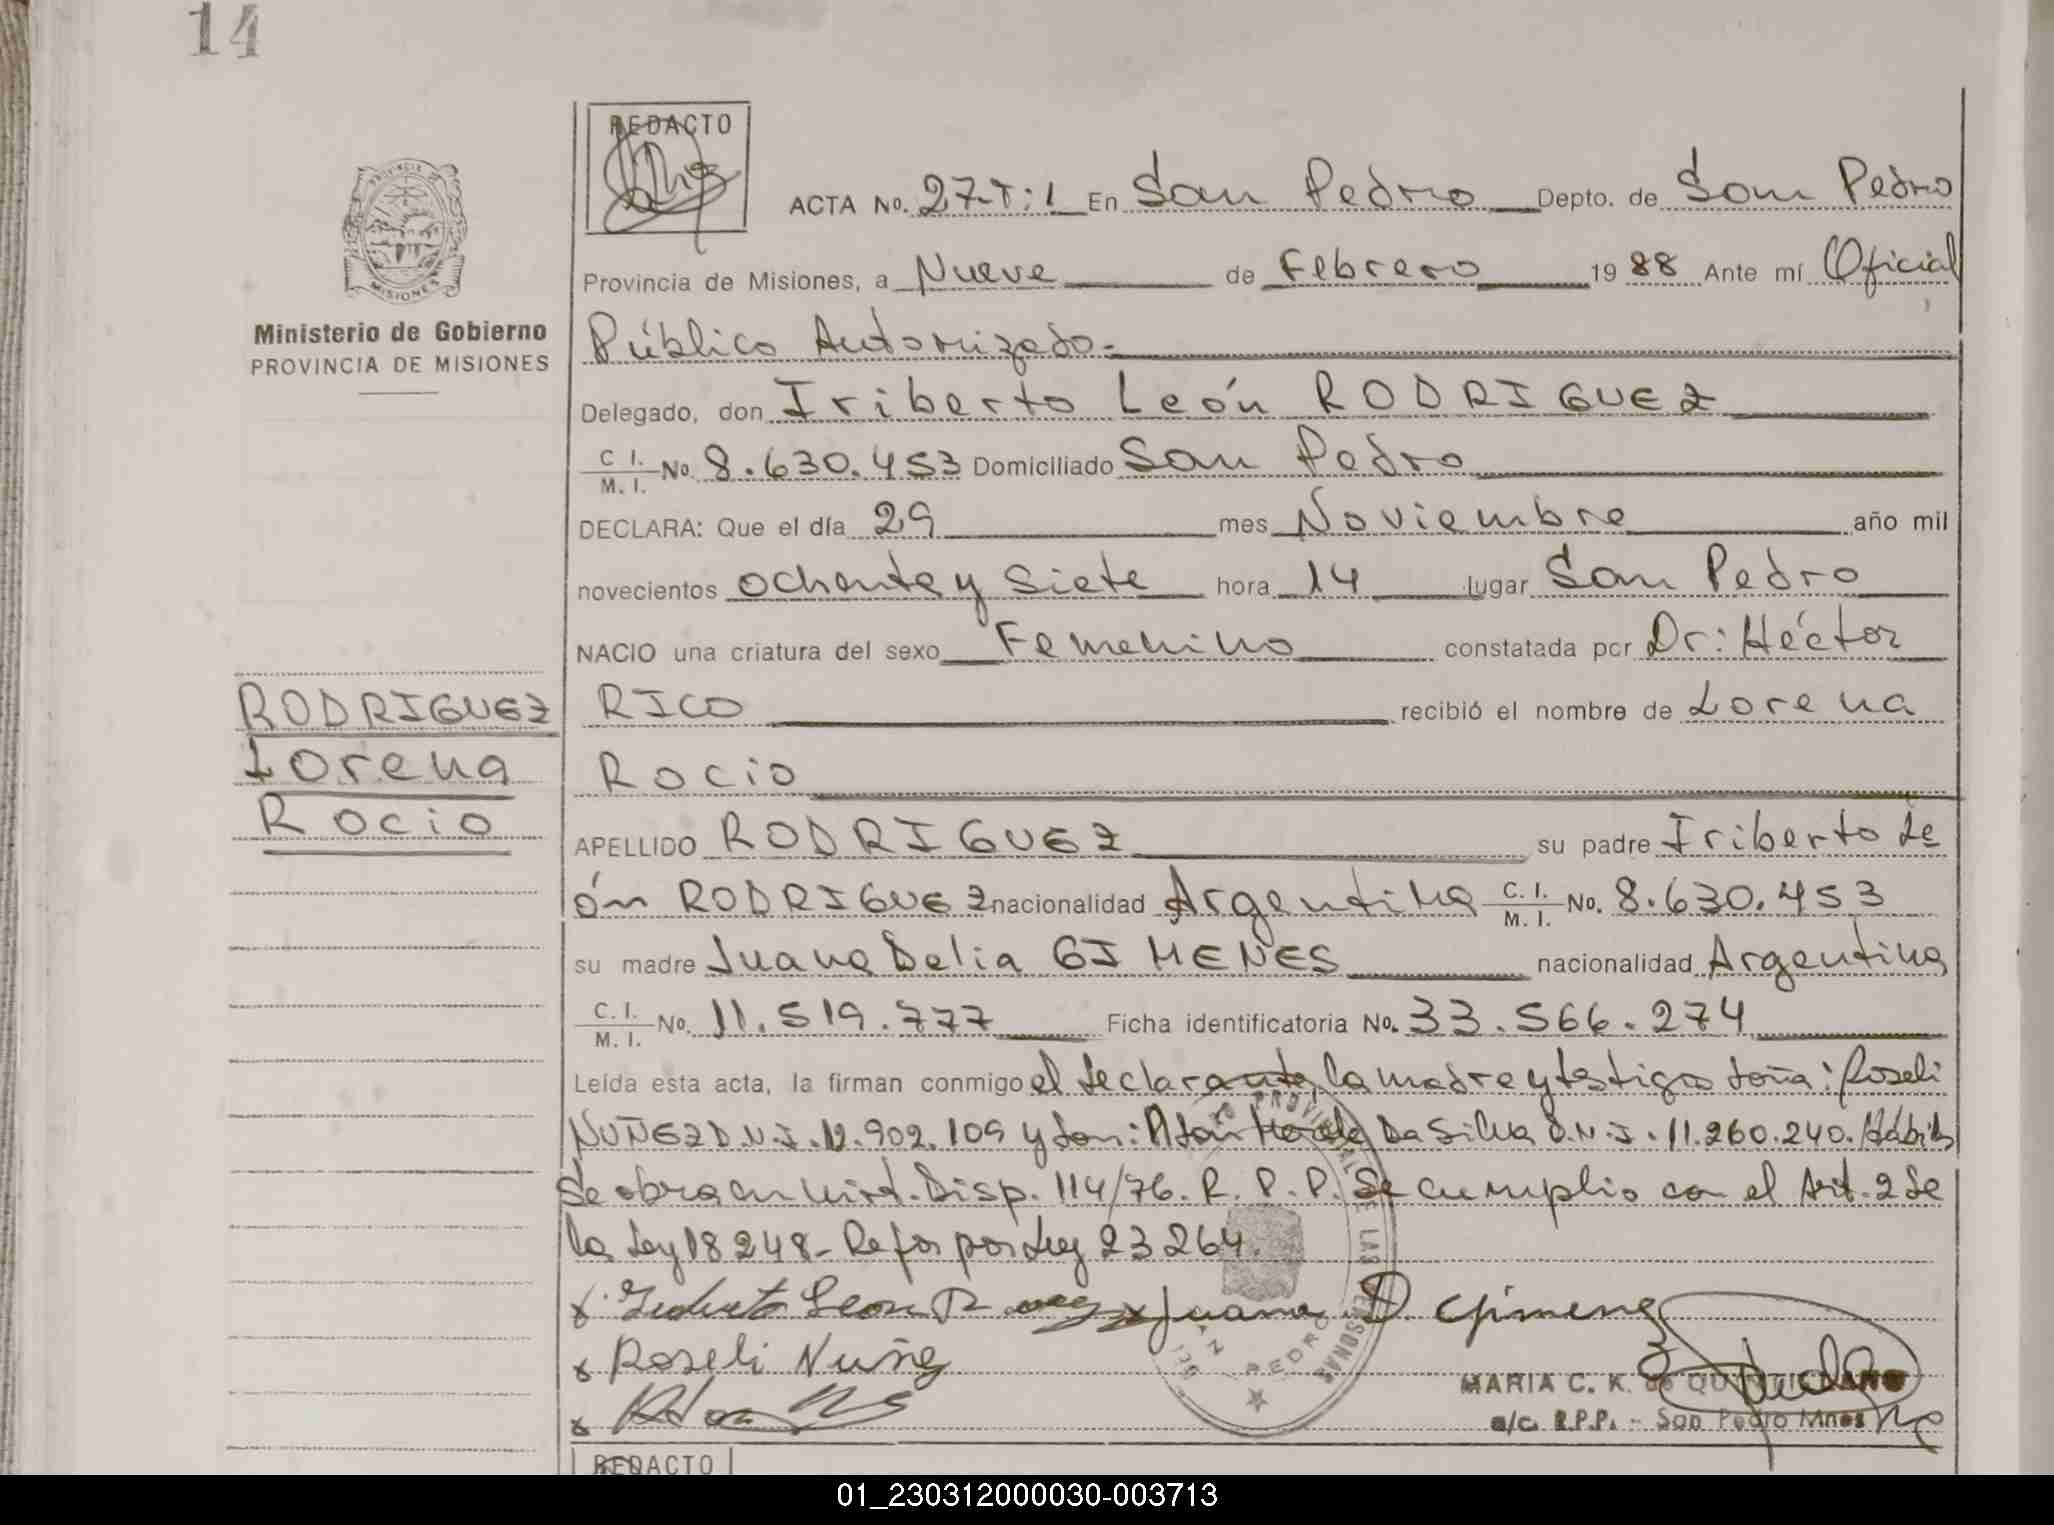 14
REDACTO
ACTA No. 27-T:1 En San Pedro Depto. de San Pedro
Provincia de Misiones, a Nueve de Febrero 1988 Ante mí Oficial
Público Autorizado.-
PROVINCIA DE
MISIONES
Ministerio de Gobierno
PROVINCIA DE MISIONES
Delegado, don Iriberto León RODRIGUEZ
C. I.
M. I. No. 8.630.453 Domiciliado San Pedro
DECLARA: Que el día 29 mes Noviembre año mil
novecientos ochenta y siete hora 14 lugar San Pedro
NACIO una criatura del sexo Femenino constatada por Dr: Héctor
RICO recibió el nombre de Lorena
Rocio
RODRIGUEZ
Lorena
Rocio
APELLIDO RODRIGUEZ su padre Iriberto Le
ón RODRIGUEZ nacionalidad Argentina C. I.
M. I. No. 8.630.453
su madre Juana Delia GIMENES nacionalidad Argentina
C. I.
M. I. No. 11.519.777 Ficha identificatoria No. 33.566.274
Leída esta acta, la firman conmigo el declarante, la madre y testigos doña: Roseli
NUÑEZ D.N.I. 12.902.109 y don: Da Silva D.N.I. 11.260.240. Hábiles
Se obra en vird. Disp. 114/76. R. P. P. Se cumplio con el Art. 2 de
la Ley 18248- Refor por Ley 23264.
x Juana D. Gimenez
x Roseli Nuñez
x
PROVINCIAL DE LAS PERSONAS
SAN PEDRO
MARIA C. K. de
a/c. R.P.P. - San Pedro Mnes
REDACTO
01_230312000030-003713